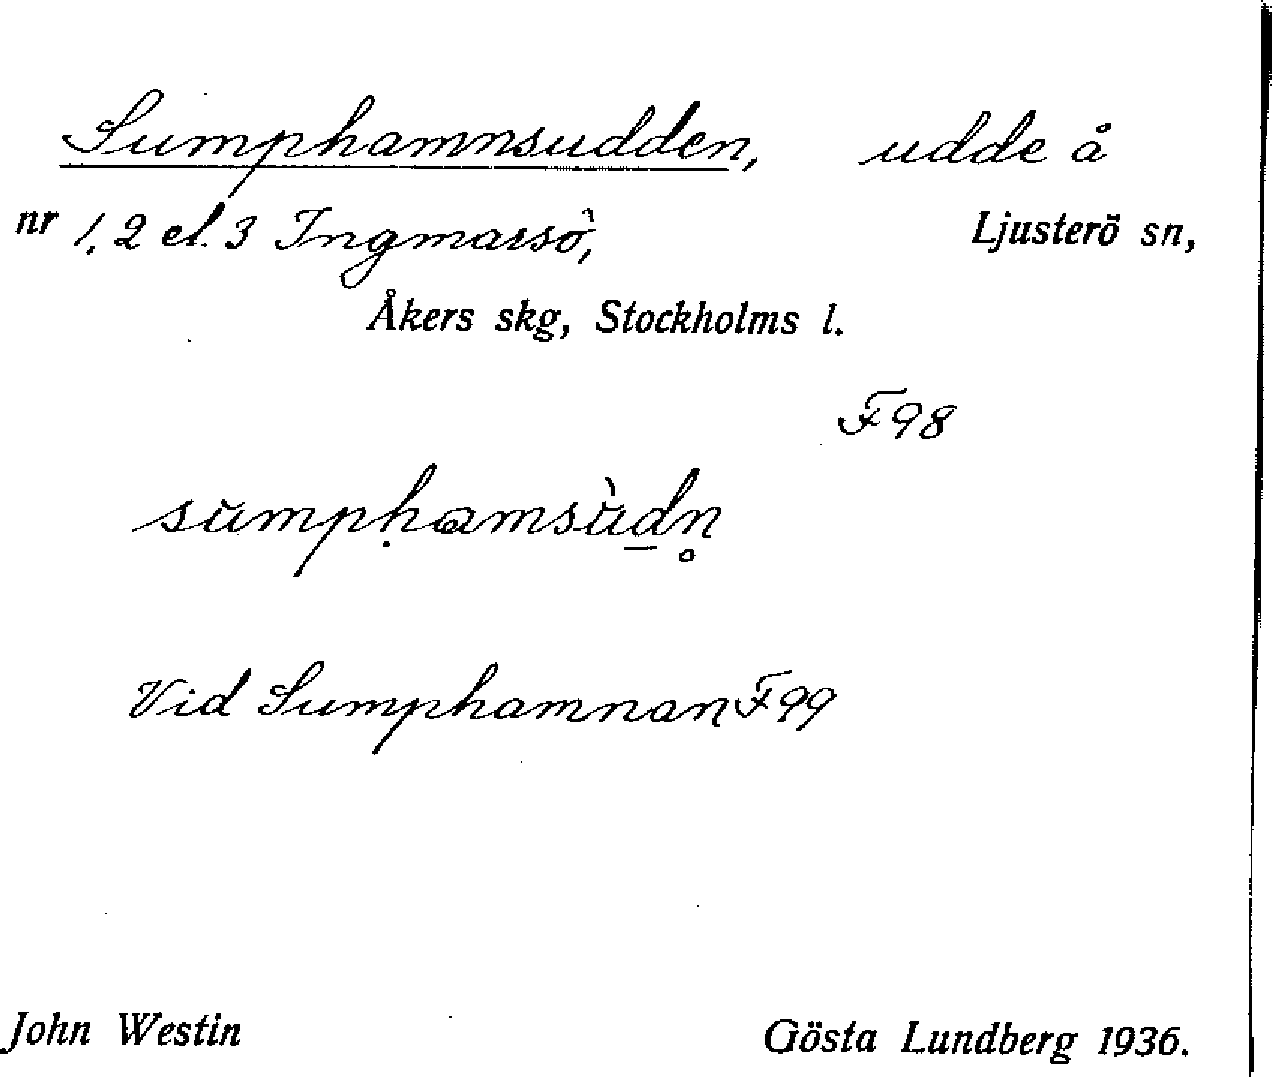 Sumphamnsudden, udde å
nr 1, 2 el. 3 Ingmarsö, Ljusterö sn,
Åkers skg, Stockholms l.
F98
Vid Sumphamnan F99
John Westin Gösta Lundberg 1936.